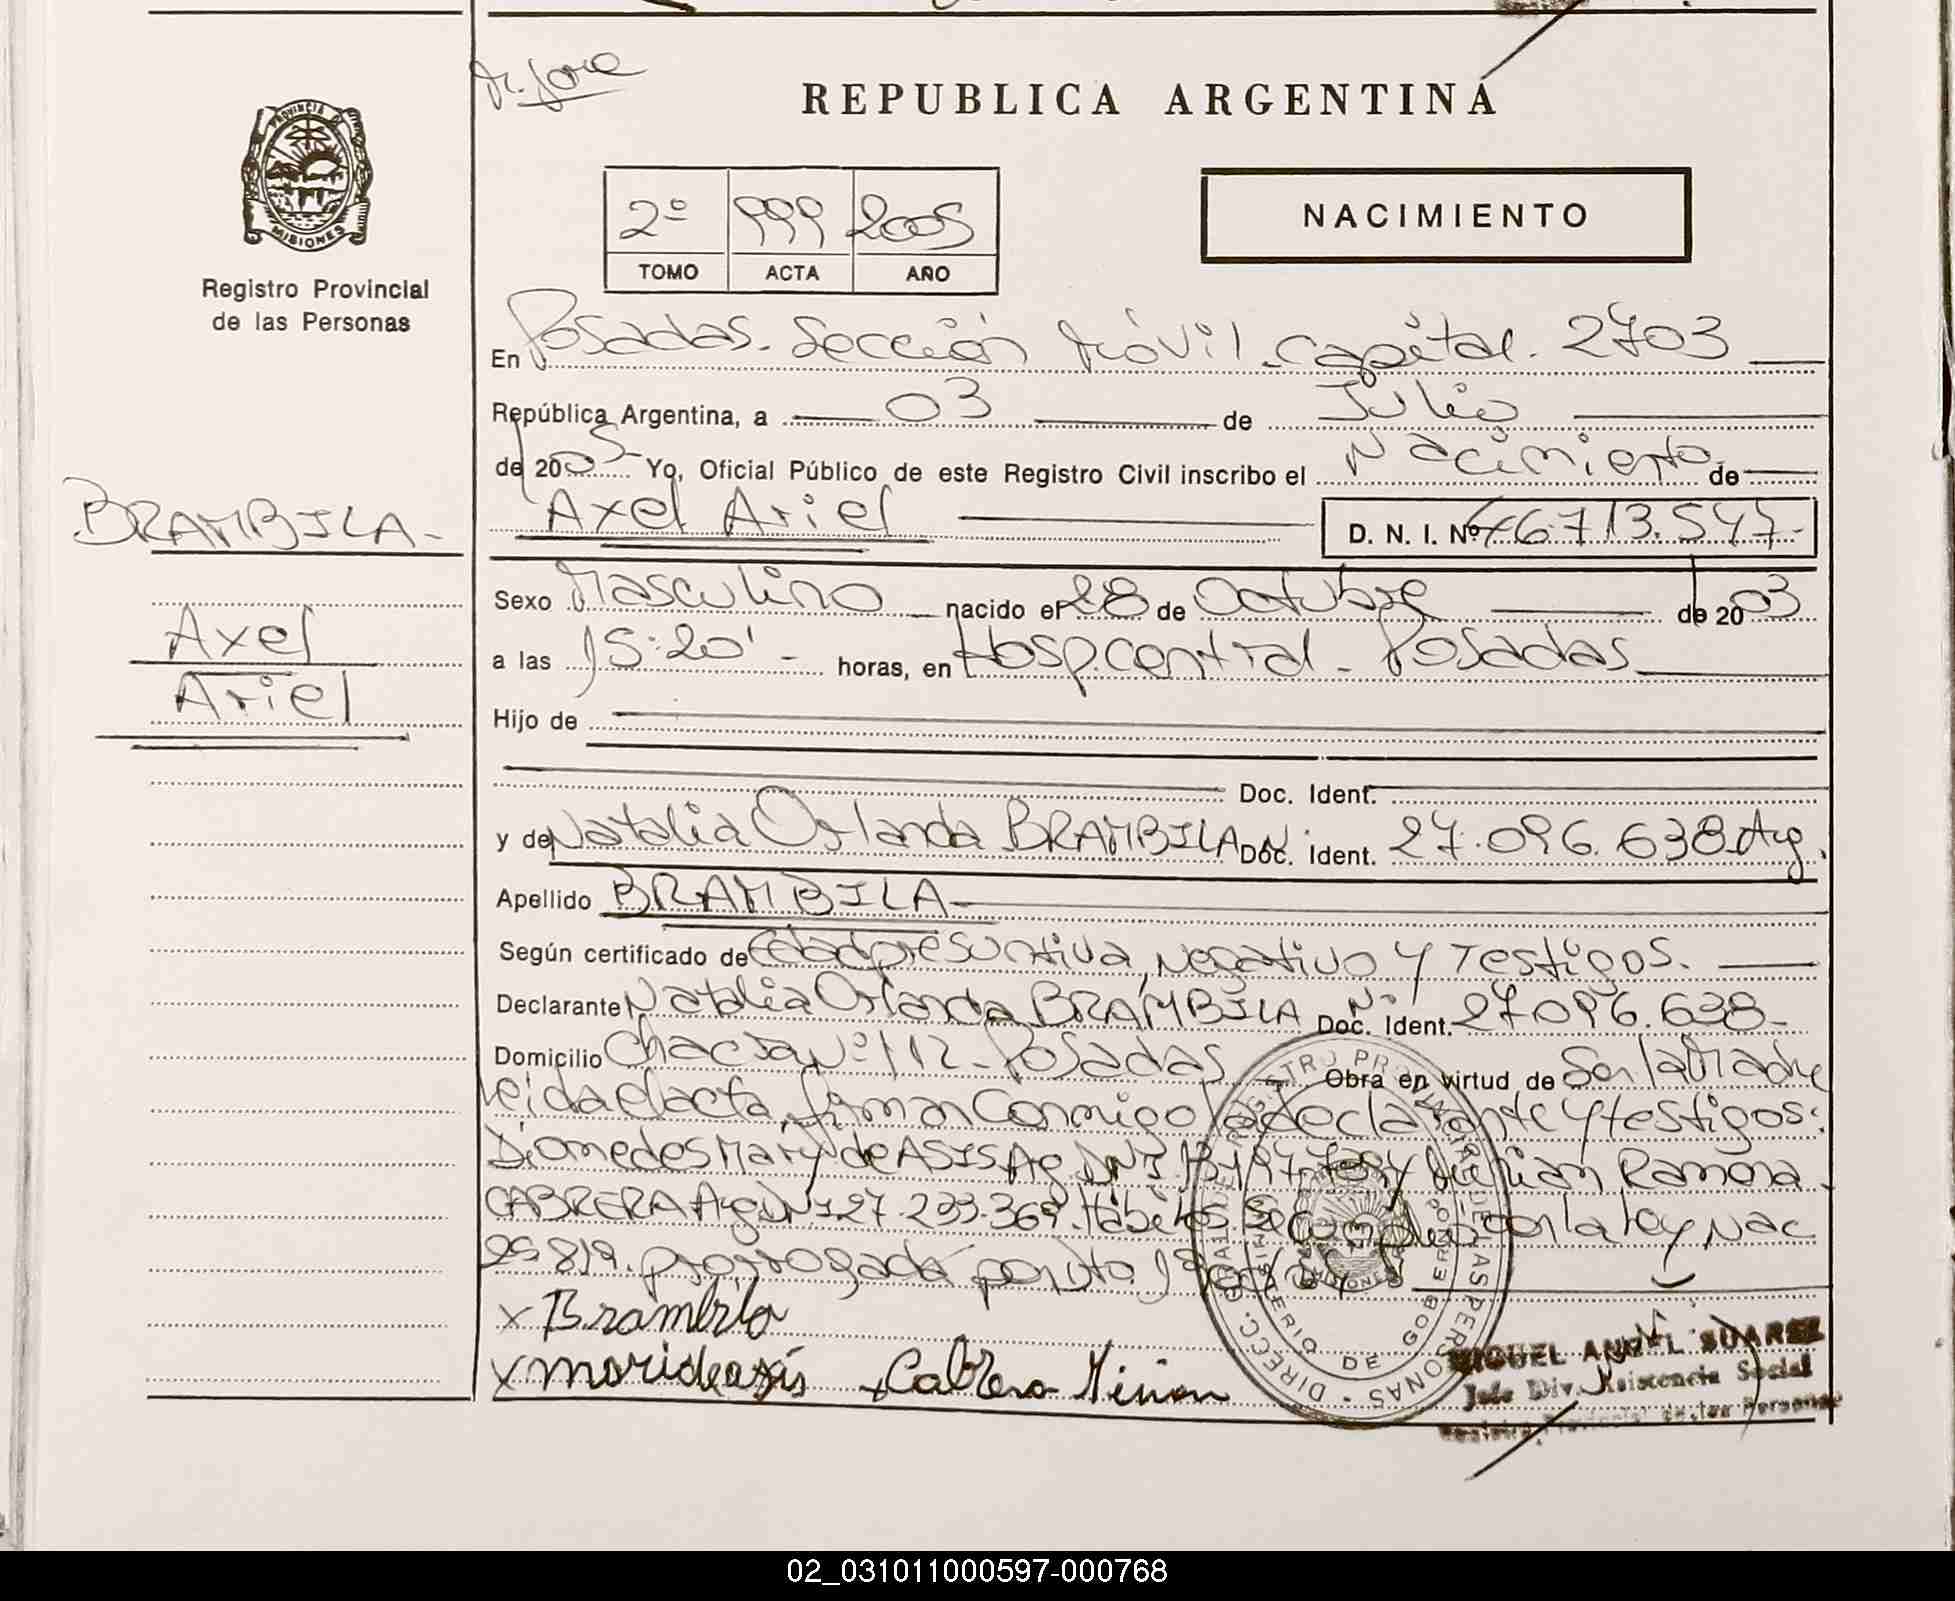 REPUBLICA ARGENTINA
PROVINCIA DE
MISIONES
Registro Provincial
de las Personas
2º 999 2005
TOMO ACTA AÑO
NACIMIENTO
En Posadas. Sección Móvil. Capital. 2703
República Argentina, a 03 de Julio
de 2005 Yo, Oficial Público de este Registro Civil inscribo el Nacimiento de
Axel Ariel D. N. I. Nº 46.713.547-
BRAMBILA-
Axel
Ariel
Sexo Masculino nacido el 28 de Octubre de 2003
a las 15:20' - horas, en Hosp. Central - Posadas
Hijo de
Doc. Ident.
y de Natalia Orlanda BRAMBILA Doc. Ident. 27.096.638 Arg.
Apellido BRAMBILA-
Según certificado de Edad presuntiva, Negativo y Testigos.
Declarante Natalia Orlanda BRAMBILA Doc. Ident. Nº 27096.638-
Domicilio Chacra Nº 112 - Posadas Obra en virtud de Ser la Madre
leida el acta, firman conmigo la declarante y testigos:
Diomedes Mary de ASIS Ag DNI y Ramona
CABRERA Ag DNI 27.233.369. Hábiles. Se con la ley Nac
25.819. prorrogada por Dto.
x Brambila
x x Cabrera
MIGUEL ANGEL SUAREZ
Jefe Div. Asistencia Social
Registro Provincial de las Personas
DIRECC. GRAL. DEL REGISTRO PROVINCIAL DE LAS PERSONAS
MINISTERIO DE GOBIERNO
MISIONES
02_031011000597-000768